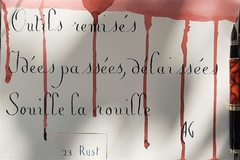 Outils remisés
Idées passées, délaissées
Souille la rouille
AG
23 Rust